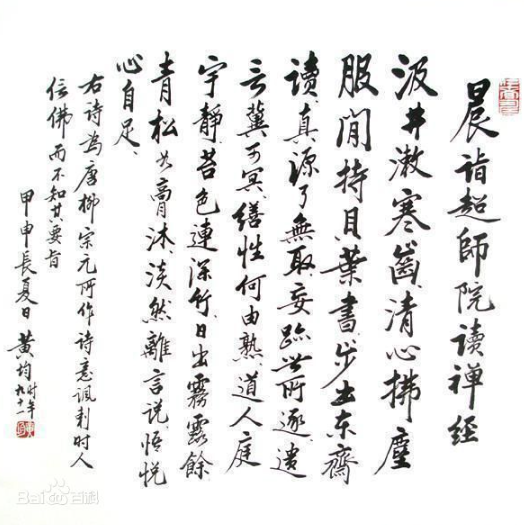 晨诣超師院读禅经
汲井漱寒齒清心拂塵
服閒持貝葉書步出东齋
读真源了無取妄跡世所逐遗
言冀可冥缮性何由熟道人庭
宇靜苔色連深竹日出霧露餘
青松如膏沐淡然離言说悟悦
心自足
右诗為唐柳宗元所作诗意讽刺时人
信佛而不知其要旨
甲申長夏日 黄均 时年九十一
Baidu百科